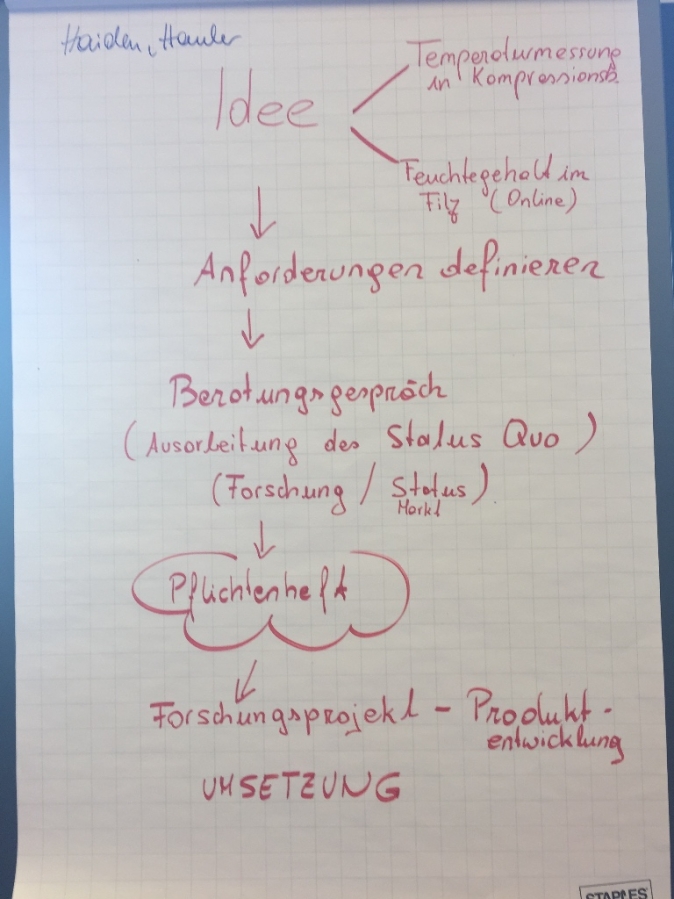 Haiden, Hauler
Idee
Temperaturmessung
in Kompressionsb.
Feuchtegehalt im
Filz (Online)
Anforderungen definieren
Beratungsgespräch
(Ausarbeitung des Status Quo)
(Forschung / Status)
Markt
Pflichtenheft
Forschungsprojekt - Produkt-
entwicklung
UMSETZUNG
STAPLES